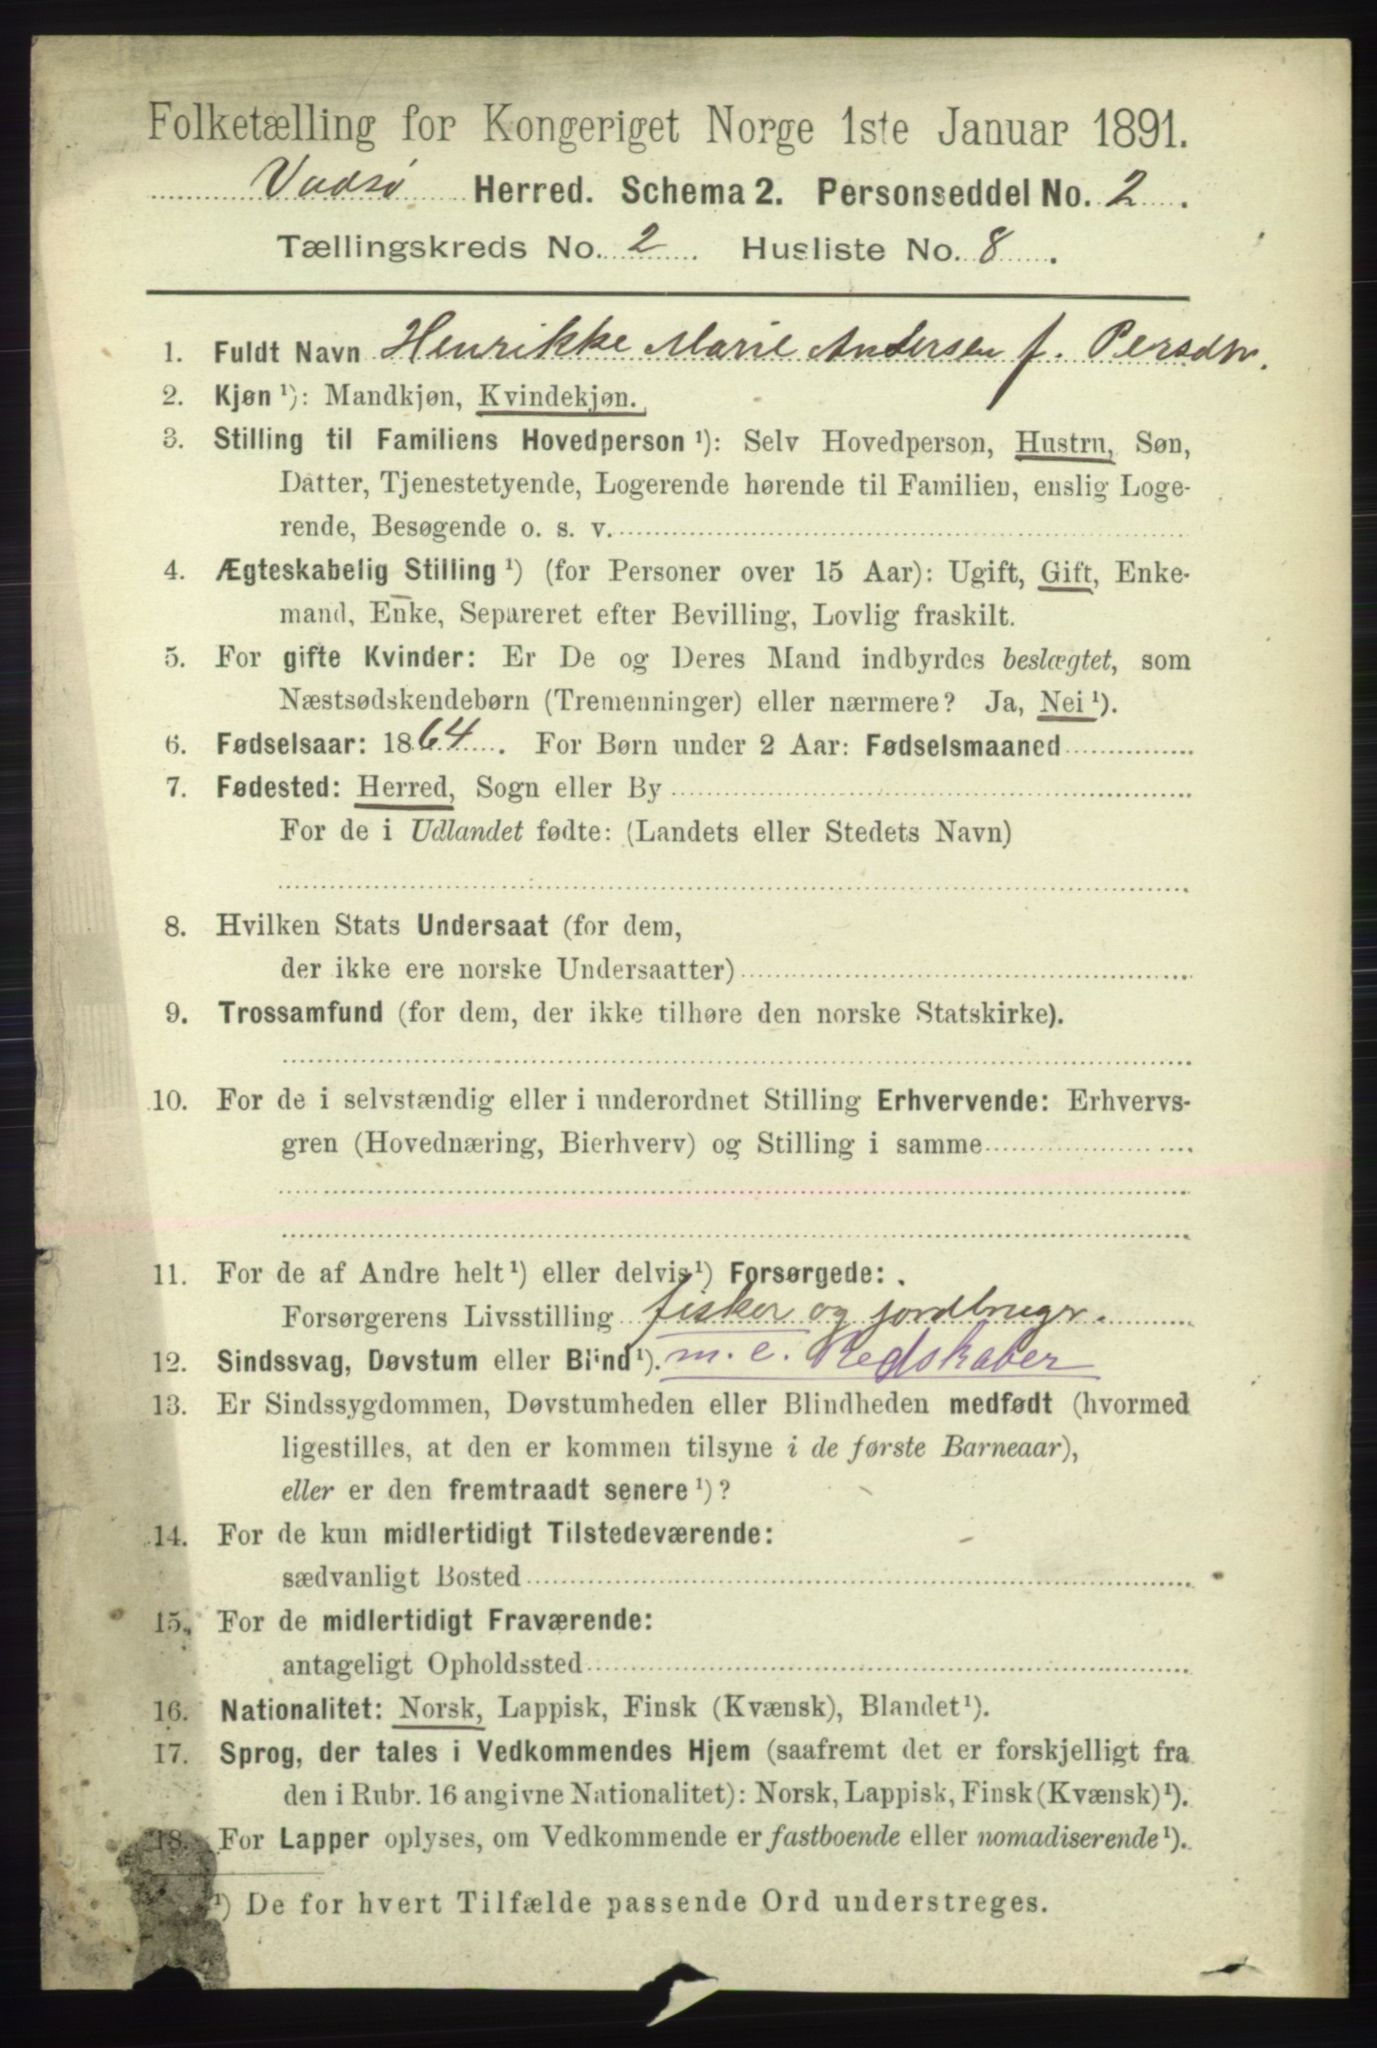 Folketælling for Kongeriget Norge 1ste Januar 1891.
Vadsø Herred. Schema 2. Personseddel No. 2.
Tællingskreds No. 2. Husliste No. 8.
1. Fuldt Navn Henrikke Marie Andersen f. Persdtr.
2. Kjøn ¹): Mandkjøn, Kvindekjøn.
3. Stilling til Familiens Hovedperson ¹): Selv Hovedperson, Hustru, Søn,
Datter, Tjenestetyende, Logerende hørende til Familien, enslig Loge-
rende, Besøgende o. s. v.
4. Ægteskabelig Stilling ¹) (for Personer over 15 Aar): Ugift, Gift, Enke-
mand, Enke, Separeret efter Bevilling, Lovlig fraskilt.
5. For gifte Kvinder: Er De og Deres Mand indbyrdes beslægtet, som
Næstsødskendebørn (Tremenninger) eller nærmere? Ja, Nei ¹).
6. Fødselsaar: 1864. For Børn under 2 Aar: Fødselsmaaned
7. Fødested: Herred, Sogn eller By
For de i Udlandet fødte: (Landets eller Stedets Navn)
8. Hvilken Stats Undersaat (for dem,
der ikke ere norske Undersaatter)
9. Trossamfund (for dem, der ikke tilhøre den norske Statskirke).
10. For de i selvstændig eller i underordnet Stilling Erhvervende: Erhvervs-
gren (Hovednæring, Bierhverv) og Stilling i samme
11. For de af Andre helt ¹) eller delvis ¹) Forsørgede:
Forsørgerens Livsstilling fisker og jordbruger.
12. Sindssvag, Døvstum eller Blind ¹). m. e. Redskaber
13. Er Sindssygdommen, Døvstumheden eller Blindheden medfødt (hvormed
ligestilles, at den er kommen tilsyne i de første Barneaar),
eller er den fremtraadt senere ¹)?
14. For de kun midlertidigt Tilstedeværende:
sædvanligt Bosted
15. For de midlertidigt Fraværende:
antageligt Opholdssted
16. Nationalitet: Norsk, Lappisk, Finsk (Kvænsk), Blandet ¹).
17. Sprog, der tales i Vedkommendes Hjem (saafremt det er forskjelligt fra
den i Rubr. 16 angivne Nationalitet): Norsk, Lappisk, Finsk (Kvænsk) ¹).
18. For Lapper oplyses, om Vedkommende er fastboende eller nomadiserende ¹).
¹) De for hvert Tilfælde passende Ord understreges.